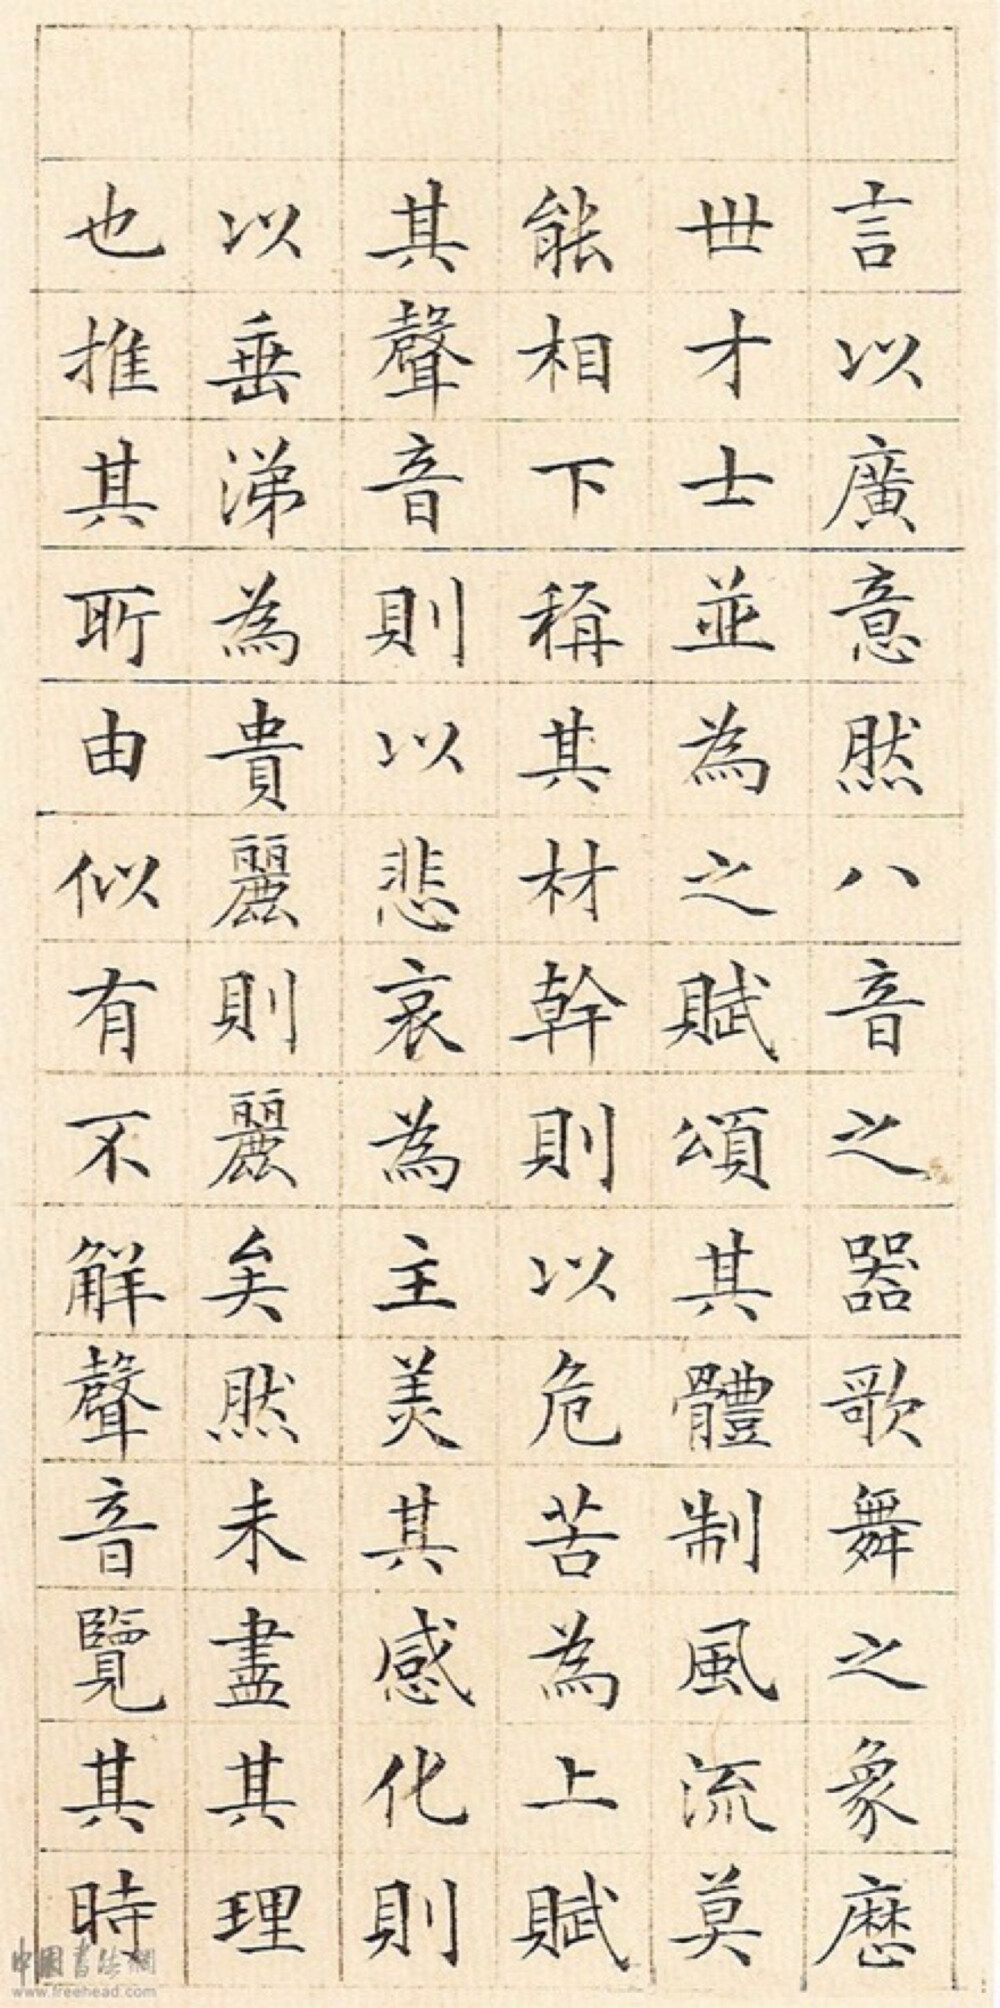 言以廣意然八音之器歌舞之象歷
世才士並為之賦頌其體制風流莫
能相下稱其材幹則以危苦為上賦
其聲音則以悲哀為主美其感化則
以垂涕為貴麗則麗矣然未盡其理
也推其所由似有不解聲音覽其時
中國書法網
www.freehead.com